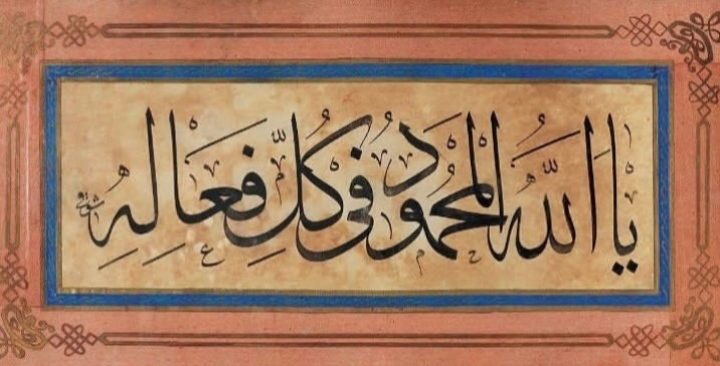 يَا اَللّٰهُ الْمَحْمُودُ فِى كُلِّ فِعَالِهِ